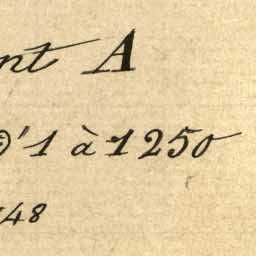 nt A
' 1 à 1250
48